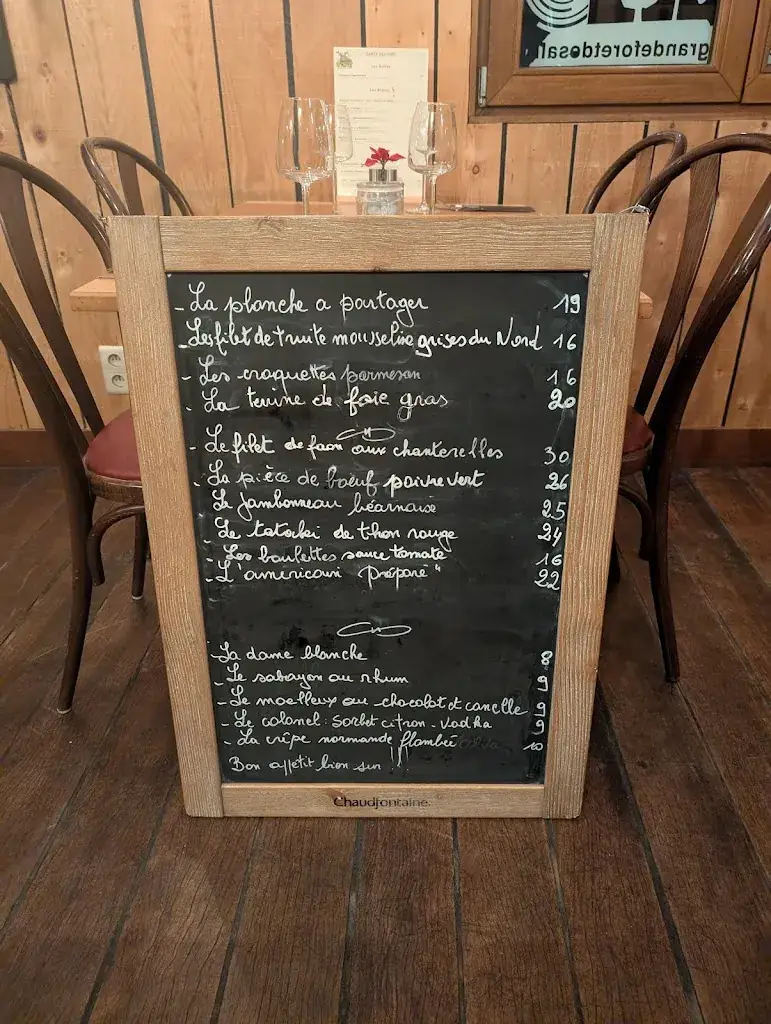 grandeforetdesai
- La planche a partager 19
- Les filet de truite mousseline grises du Nord 16
- Les croquettes parmesan 16
- La terrine de foie gras 20
- Le filet de faon aux chanterelles 30
- La pièce de bœuf poivre vert 26
- Le jambonneau béarnaise 25
- Le tataki de thon rouge 24
- Les boulettes sauce tomate 16
- L'américain "préparé" 22
- La dame blanche 8
- Le sabayon au rhum 9
- Le moelleux au chocolat et canelle 9
- Le colonel : Sorbet citron - Vodka 9
- La crêpe normande flambée 10
Bon appétit bien sur !!!
Chaudfontaine.